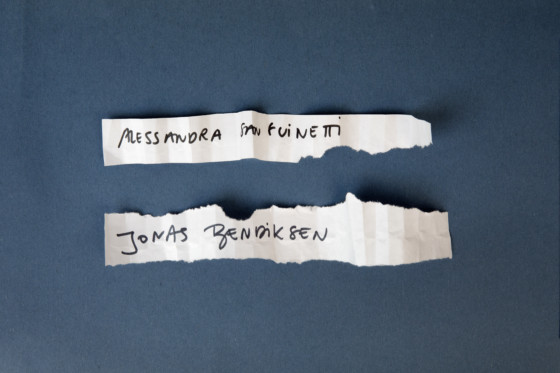 ALESSANDRA SAN GUINETTI
JONAS BENDIKSEN